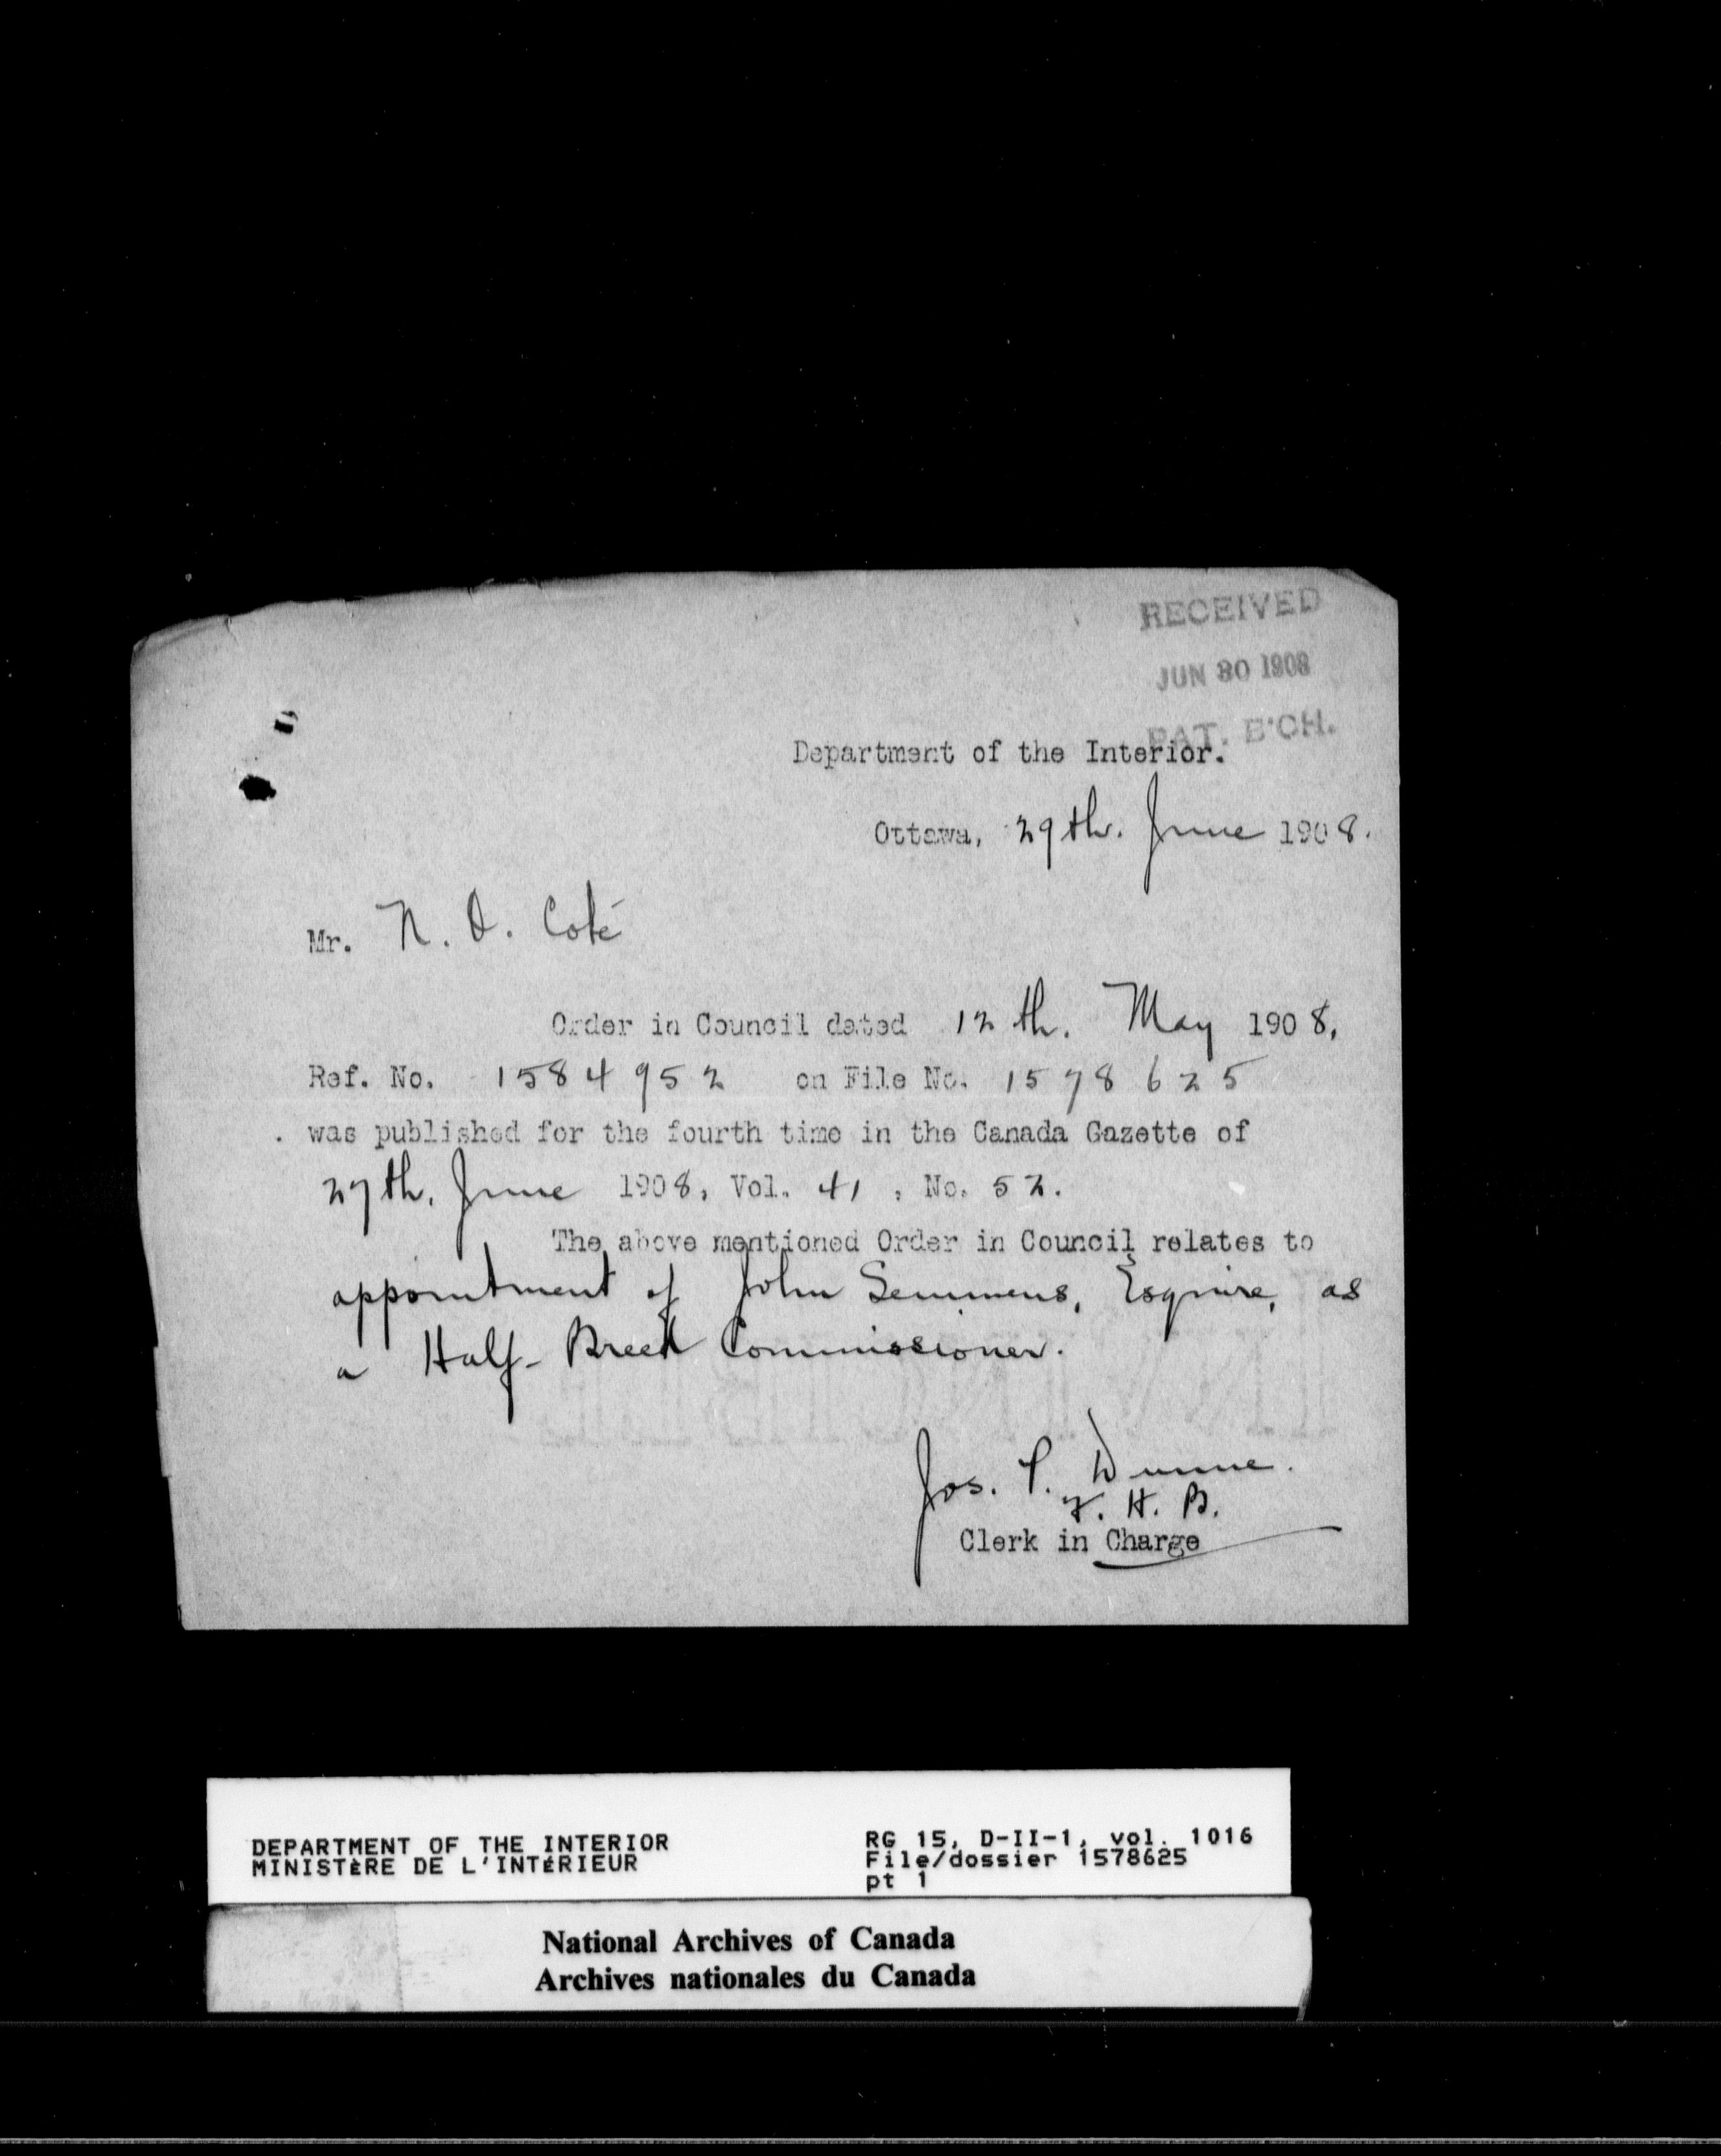 RECEIVED
JUN 30 1908
PAT. B'CH.
Department of the Interior.
Ottawa, 29th. June 1908.
Mr. N. O. Coté
Order in Council dated 12th. May 1908,
Ref. No. 1584952 on File No. 1578625
was published for the fourth time in the Canada Gazette of
27th. June 1908, Vol. 41, No. 52.
The above mentioned Order in Council relates to
appointment of John Semmens, Esquire, as
a Half-Breed Commissioner.
Jos. P. Dunne.
F. H. B.
Clerk in Charge
DEPARTMENT OF THE INTERIOR
MINISTÈRE DE L'INTÉRIEUR
RG 15, D-II-1, vol. 1016
File/dossier 1578625
pt 1
National Archives of Canada
Archives nationales du Canada